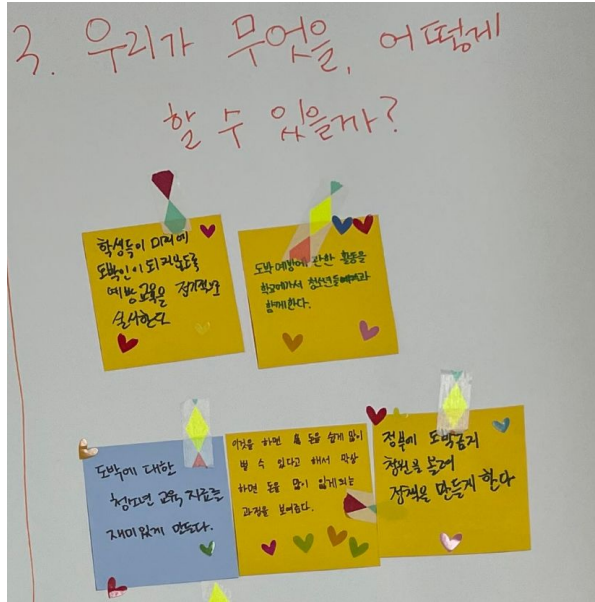 3. 우리가 무엇을, 어떻게
할 수 있을까?
학생들이 미리에
도박인이 되지않도록
예방교육을 정기적으로
실시한다
도박예방에 관한 활동을
학교에가서 청소년들에게과
함께한다.
도박에 대한
청소년 교육 자료를
재미있게 만든다.
이것을 하면 돈을 쉽게 많이
벌 수 있다고 해서 막상
하면 돈을 많이 잃게되는
과정을 보여준다.
정부에 도박금지
청원을 올려
정책을 만들게 한다